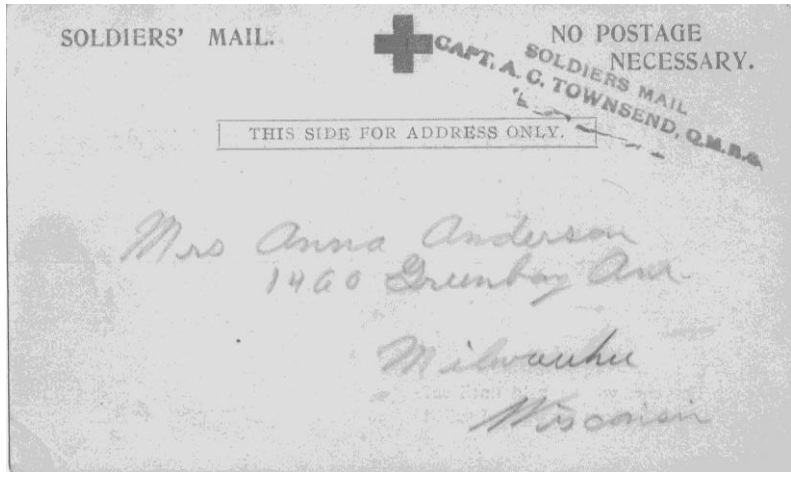 SOLDIERS' MAIL.
NO POSTAGE
NECESSARY.
SOLDIERS MAIL
CAPT. A. C. TOWNSEND, Q.M.R.C.
THIS SIDE FOR ADDRESS ONLY.
Mrs Anna Anderson
1460 Greenbay Ave.
Milwaukee
Wisconsin